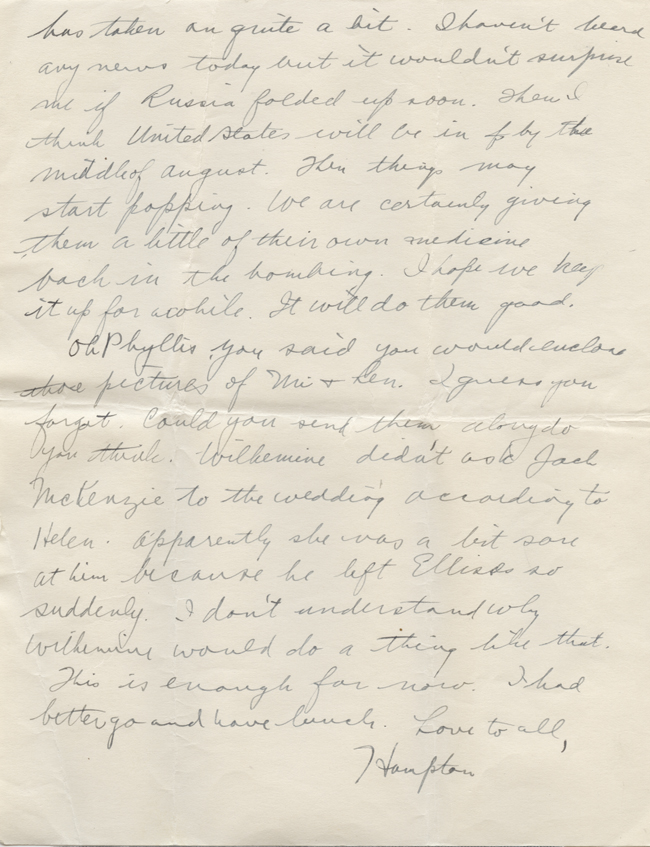 has taken on quite a bit. I haven't heard
any news today but it wouldn't surprise
me if Russia folded up soon. Then I
think United States will be in by the
middle of august. Then things may
start popping. We are certainly giving
them a little of their own medicine
back in the bombing. I hope we keep
it up for awhile. It will do them good.
Oh Phyllis, you said you would enclose
those pictures of Mi & Len. I guess you
forgot. Could you send them along do
you think. Wilhemine didn't ask Jack
McKenzie to the wedding according to
Helen. apparently she was a bit sore
at him because he left Ellises so
suddenly. I don't understand why
Wilhemine would do a thing like that.
This is enough for now. I had
better go and have lunch. Love to all,
Hampton